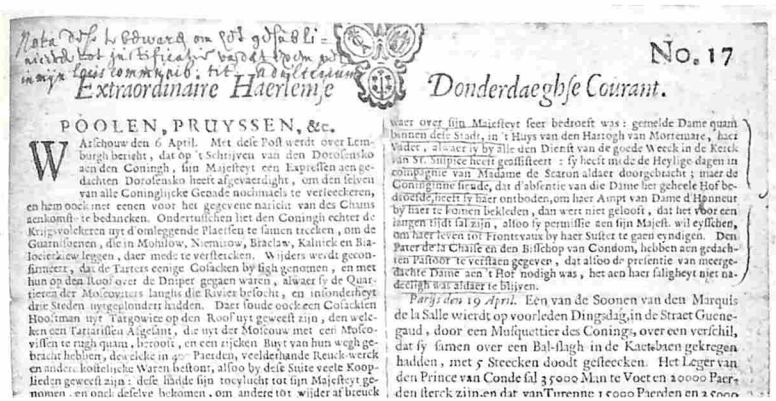 Nota dese te beware om het gepubli-
No. 17
Extraordinaire Haerlemse Donderdaeghse Courant.
POOLEN, PRUYSSEN, &c.
WArschouw den 6 April. Met dese Post werdt over Lem-
burgh bericht, dat op 't Schrijven van den Dorosensko
aen den Coningh, sijn Majesteyt een Expressen aen ge-
dachten Dorosensko heeft afgevaerdight, om den selven
van alle Coninghlijcke Genade nochmaels te versekeren,
en hem oock met eenen voor het gegevene naricht van des Chams
aenkomst te bedancken. Ondertusschen liet den Coningh echter de
Krijgsvolckeren uyt d'omleggende Plaetsen te samen trecken, om de
Guarnisoenen, die in Mohilow, Niemirow, Braclaw, Kalnick en Bia-
locierkiew leggen, daer mede te verstercken. Wijders werdt gecon-
firmeert, dat de Tarters eenige Cosacken by sigh genomen, en met
hun op den Roof over de Dniper gegaen waren, alwaer sy de Quar-
tieren der Moscoviters langhs die Rivier besocht, en insonderheyt
drie Steden uytgeplondert hadden. Daer soude oock een Cosackten
Hooftman uyt Targowice op den Roof uyt geweest zijn, den welc-
ken een Tartarissen Afgesant, die uyt der Moscouw met een Mosco-
vissen te rugh quam, berooft, en een rijcken Buyt van hun wegh ge-
bracht hebben, dewelcke in 40 Paerden, veelderhande Reuck-werck
en andere kostelijcke Waren bestont, alsoo by dese Suite veele Koop-
lieden geweest zijn: dese hadde sijn tocvlucht tot sijn Majesteyt ge-
nomen, en oock deselve bekomen, om andere tot wijder afbreuck
waer over sijn Majesteyt seer bedroeft was: gemelde Dame quam
binnen dese Stadt, in 't Huys van den Hartogh van Mortemare, haer
Vader, alwaer sy by alle den Dienst van de goede Weeck in de Kerck
van St. Sulpice heeft geassisteert: sy heeft mede de Heylige dagen in
compagnie van Madame de Scaron aldaer doorgebracht; maer de
Coninginne siende, dat d'absentie van die Dame het geheele Hof be-
droefde, heeft sy haer ontboden, om haer Ampt van Dame d'Honneur
by haer te komen bekleden, dan wert niet gelooft, dat het voor een
langen tijdt sal zijn, alsoo sy permissie aen sijn Majest. wil eysschen,
om haer leven tot Frontevaux by haer Suster te gaen eyndigen. Den
Pater de la Chaise en den Bisschop van Condom, hebben aen gedach-
ten Pastoor te verstaen gegeven, dat alsoo de presentie van meerge-
dachte Dame aen 't Hof nodigh was, het aen haer saligheyt niet na-
deeligh was aldaer te blijven.
Parijs den 19 April. Een van de Soonen van den Marquis
de la Salle wierdt op voorleden Dingsdag, in de Straet Guene-
gaud, door een Musquettier des Conings, over een verschil,
dat sy samen over een Bal-slagh in de Kaetsbaen gekregen
hadden, met 5 Steecken doodt gesteecken. Het Leger van
den Prince van Conde sal 35000 Man te Voet en 20000 Paer-
den sterck zijn, en dat van Turenne 15000 Paerden en 25000